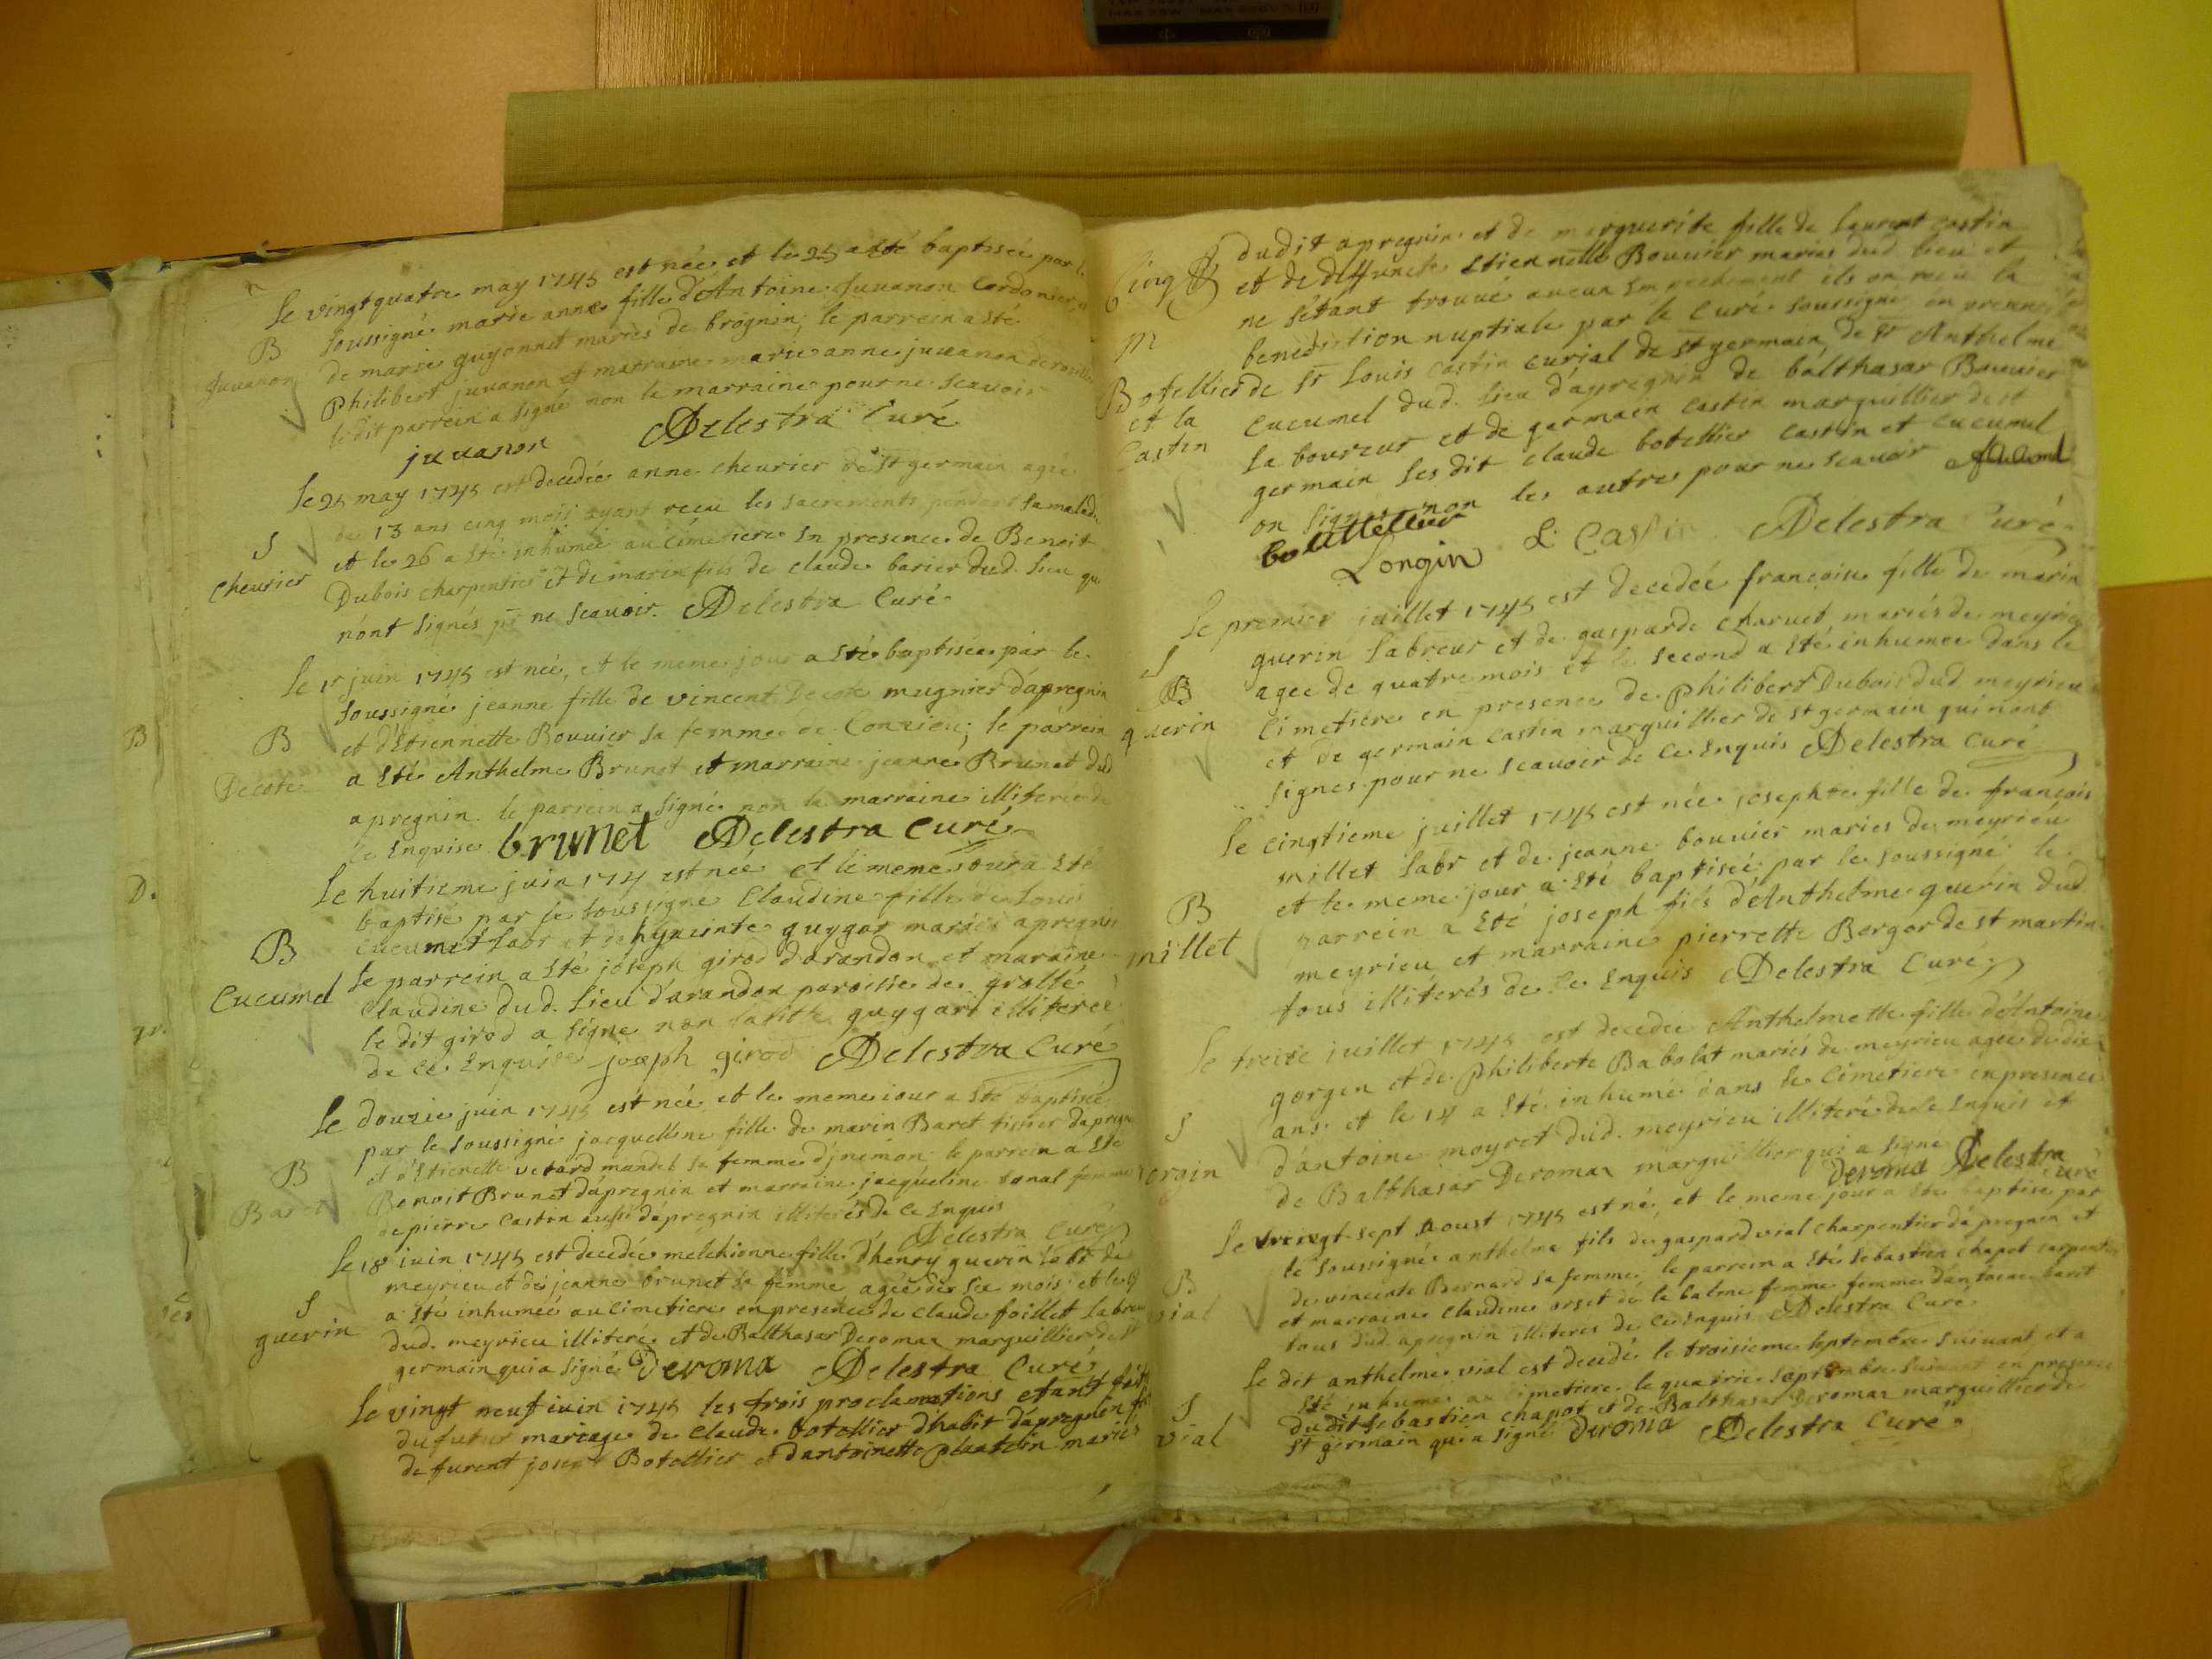 Le vingt quatre may 1745 est née et le 25 a été baptisée par le
B
Juvanon
soussigné marie anne fille d'Antoine Juvanon Cordonier
de marie guyonnet mariés de brognin; le parrein a été
Philibert juvanon et marraine marie anne juvanon
ledit parrein a signé non la marraine pour ne scavoir
juvanon ADelestra Curé
Le 25 may 1745 est decedée anne cheurier de St germain agée
de 13 ans cinq mois ayant recu les sacrements pendant sa maladie
S
Cheurier
et le 26 a été inhumée au cimetiere en presence de Benoit
Dubois charpentier et de marin fils de claude barier dud. lieu qui
n'ont signés pr ne scavoir. ADelestra Curé
Le 1r juin 1745 est née, et le meme jour a été baptisée par le
soussigné jeanne fille de vincent Decote mugnier d'apregnin
B
Decote
et d'Etiennette Bouvier sa femme de Conzieu; le parrein
a été Anthelme Brunet et marraine jeanne Brunet dud
apregnin. le parrein a signé non la marraine illiterée de
ce Enquise brunet ADelestra Curé
Le huitieme juin 174 est née et le meme jour a été
baptisé par le soussigné Claudine fille de Louis
B
Cucumel
Cucumel Labr et de hyacinte guygar mariés apregnin
le parrein a été joseph girod d'arandon et maraine
Claudine dud. lieu d'arandon paroisse de grollé
le dit girod a signé non guygard illiterée
de ce Enquise joseph girod ADelestra Curé
Le douzie juin 1745 est née et le meme jour a été baptisée
par le soussigné jacquelline fille de marin Baret tissier d'apregnin
B
Baret
et d'Etienette femme d'jnimon: le parrein a été
Benoit Brunet d'apregnin et marraine jacqueline tonal femme
de pierre Castin aussi d'apregnin illiterés de ce Enquis
ADelestra Curé
Le 18 juin 1745 est decedée melchionne fille d'henry guerin labr de
meyrieu et de jeanne brunet sa femme agée de six mois et le 19
S
guerin
a été inhumée au cimetiere en presence de claude foillet labreur
dud. meyrieu illiteré et de Balthasar Deromax marguillier de St
germain qui a signé Deroma ADelestra Curé
Le vingt neuf juin 1745 les trois proclamations etant faites
du futur mariage de Claude botellier d'habit d'apregnin fils
de furent joseph Botellier et d'antoinette plantin mariés
dudit apregnin et de marguerite fille de laurent Castin
et de deffuncte Etiennette Bouvier mariés dud. lieu et
ne s'étant trouvé aucun Empechement ils on recu la
m
benediction nuptiale par le Curé soussigné en presence
Botellier
et la
Castin
de Sr Louis Castin curial de St germain, de Sr Anthelme
Cucumel dud. lieu d'apregnin de balthasar Bouvier
laboureur et de germain Castin marguillier de St
germain les dit claude botellier Castin et Cucumel
on signés non les autres pour ne scavoir
boutellier
Longin L. Castin ADelestra Curé
Le premier juillet 1745 est decedée francoise fille de marin
S
guerin
guerin labreur et de gasparde charuet mariés de meyrieu
agée de quatre mois et le second a été inhumée dans le
Cimetiére en presence de Philibert Dubois dud meyrieu
et de germain Castin marguillier de st germain qui n'ont
signés pour ne scavoir de ce Enquis ADelestra Curé
Le cinqtieme juillet 1745 est née josephte fille de francois
millet labr et de jeanne bouvier mariés de meyrieu
B
millet
et le meme jour a été baptisée par le soussigné le
parrein a été joseph fils d'Anthelme guerin dud.
meyrieu et marraine pierrette Berger de st martin
tous illiterés de ce Enquis ADelestra Curé
Le treize juillet 1745 est decedée Anthelmette fille d'Antoine
gorgen et de Philiberte Babolat mariés de meyrieu agée de dix
S
ans et le 14 a été inhumé dans le Cimetiere en presence
d'antoine moyret dud. meyrieu illiteré de ce Enquis et
de Balthasar Deromax marguillier qui a signé
Deroma ADelestra Curé
Le vingt-sept Aoust 1745 est né, et le meme jour a été baptisé par
le soussigné anthelme fils de gaspard vial charpentier d'apregnin et
B
vial
de vincente Bernard sa femme, le parrein a été sebastien chapot carpentier
et marraine Claudine orset de la balme femme femme d'antoine baret
tous dud. apregnin illiteres de ce Enquis ADelestra Curé
Le dit anthelme vial est decedé le troisieme septembre suivant, et a
été inhumé au cimetiere le quatrie septembre suivant en presence
S
vial
dudit sebastien chapot et de Balthasar Deromax marguillier de
st germain qui a signé Deroma ADelestra Curé